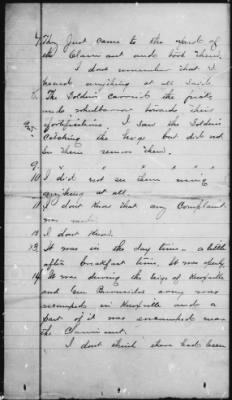 7. They just came to the house of
the Claimant and took them.
I dont remember that I
heard anything at all said.
8. The Soldiers carried the
and towards their
fortifications. I saw the Soldiers
catching the hogs but did not
see them remove them.
9. " " " "
10. I did not see them using
anything at all.
11. I dont know that any Complaint
was made.
12. I dont know.
13. It was in the day time - a little
after breakfast time. It was
14. It was during the Seige of Knoxville
and Gen Burnsides army was
encamped in Knoxville and a
part of it was encamped near
the Claimant.
I dont think there had been